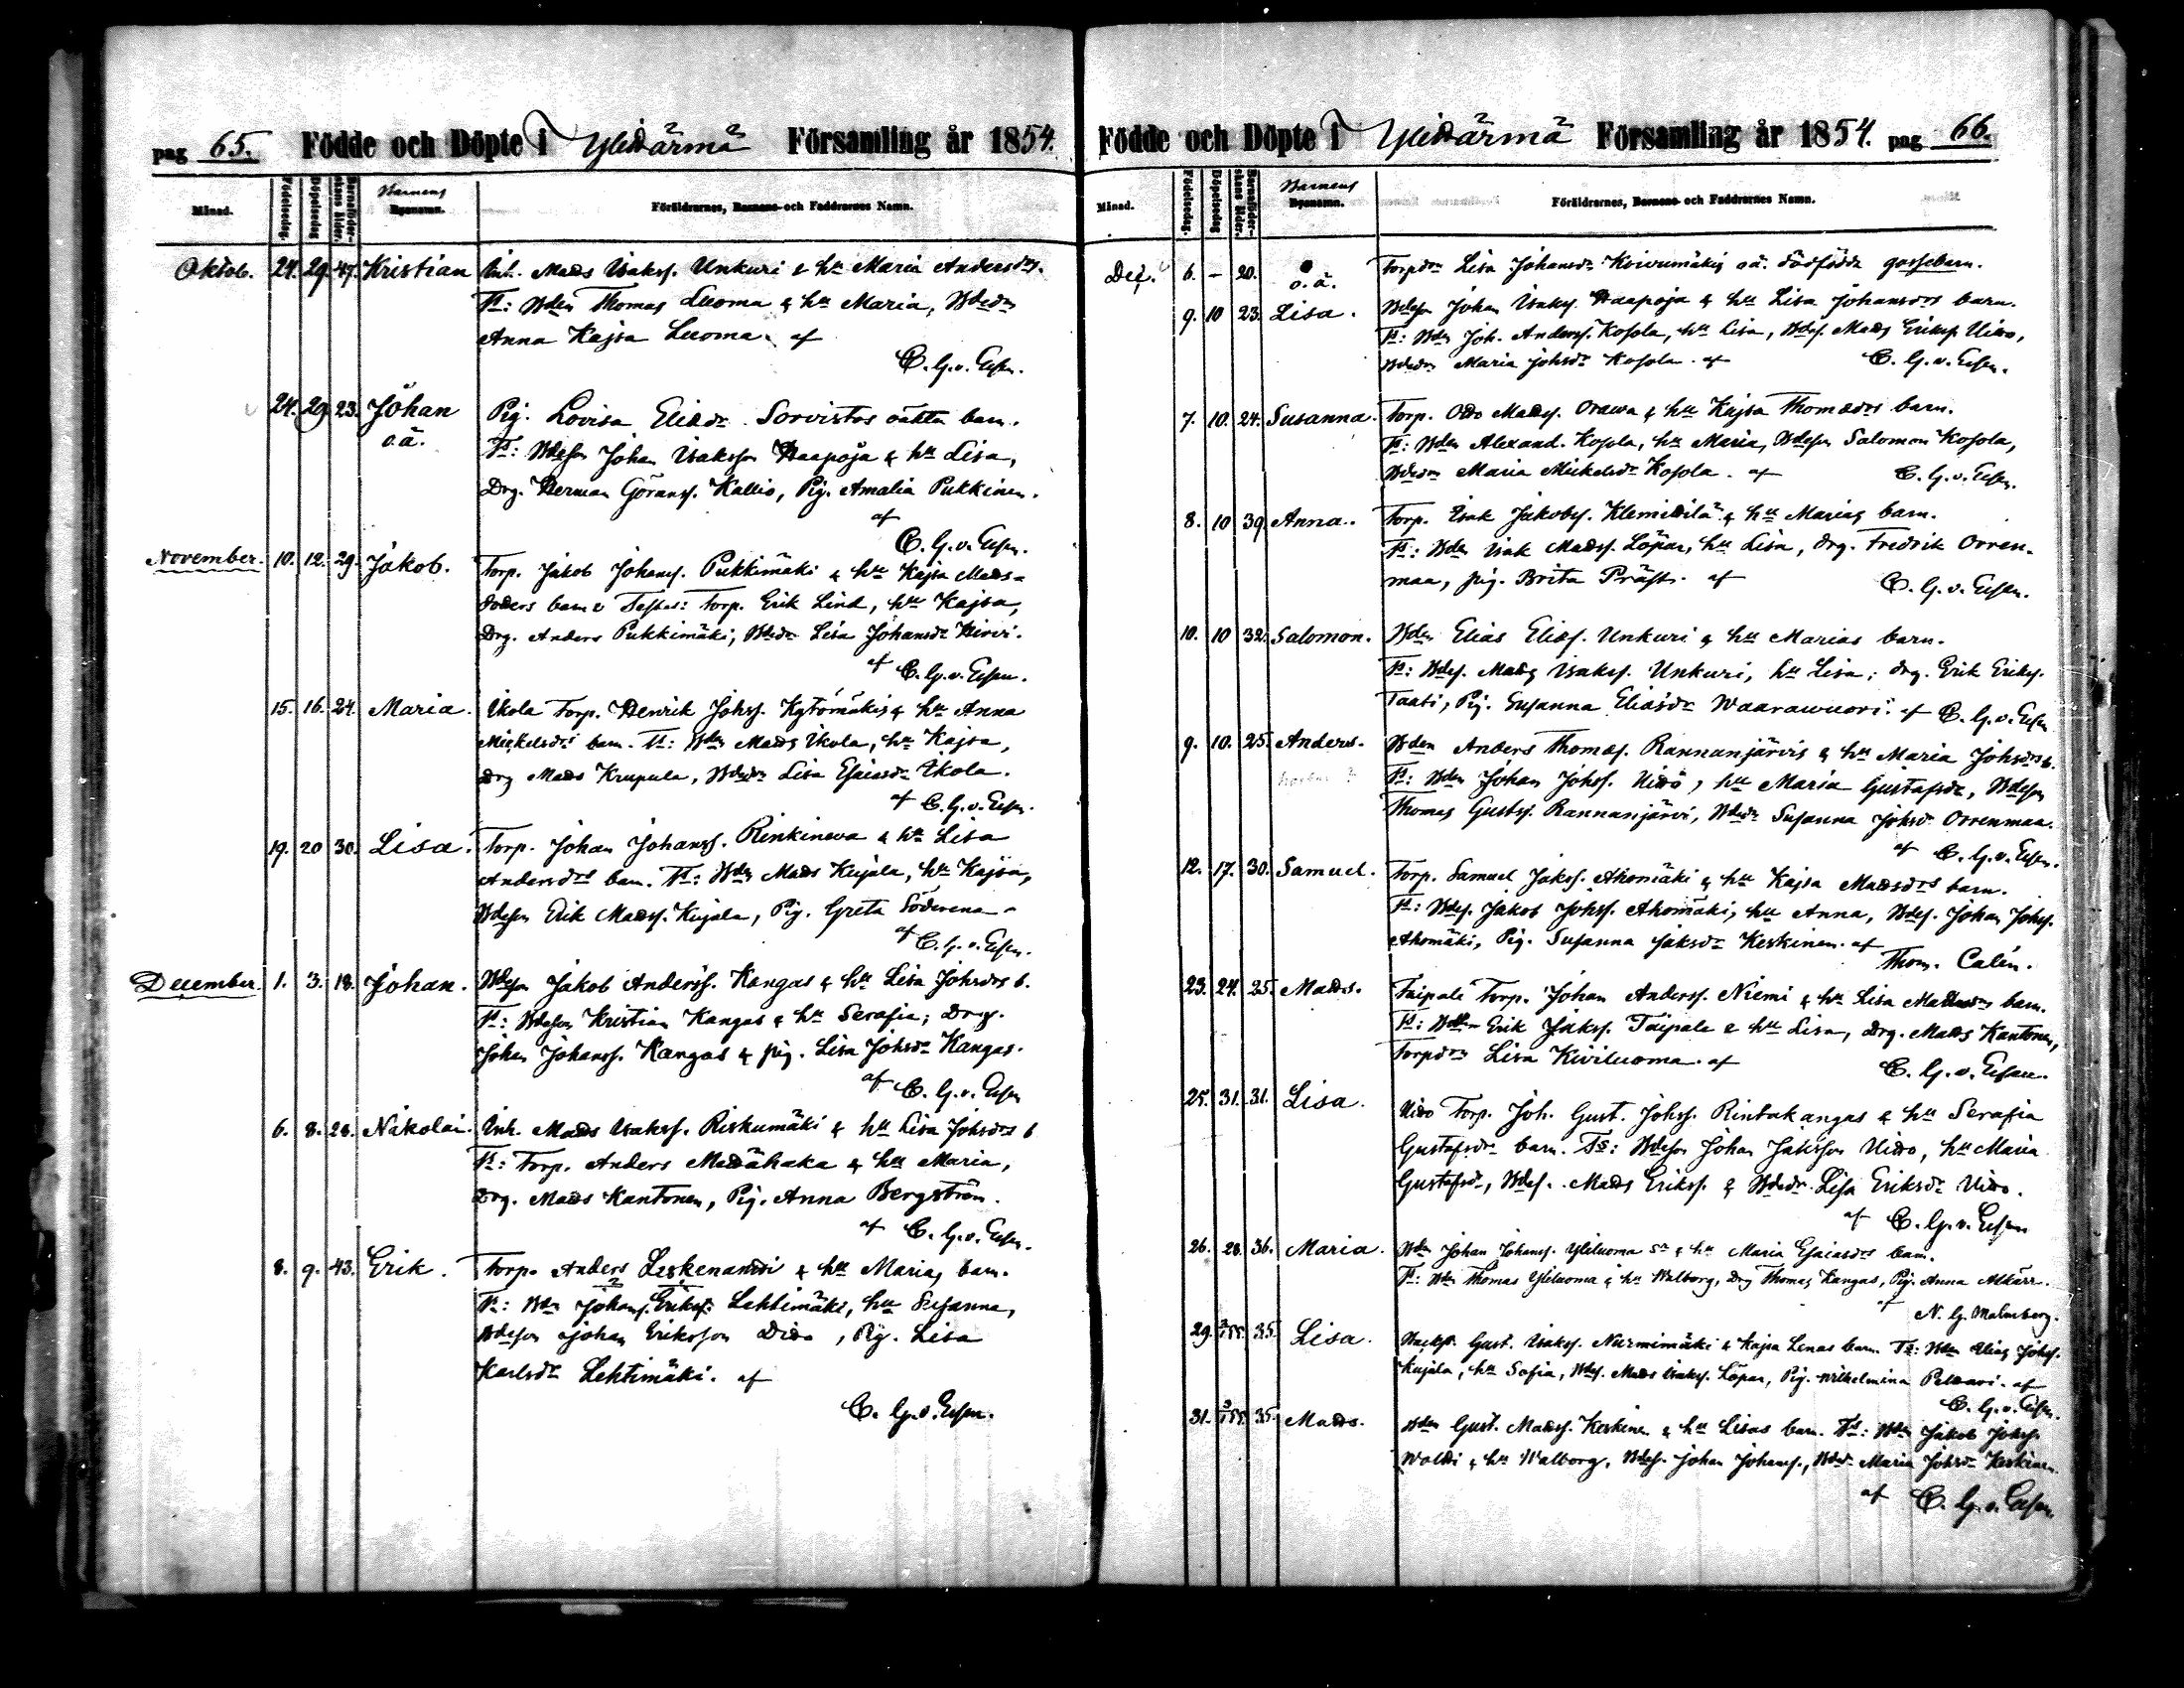 pag 65. Födde och Döpte i Ylihärmä Församling år 1854.
Månad. Födelsedag. Döpelsedag Barnaföderskans ålder. Barnens Byanamn. Föräldrarnes, Barnens och Faddrarnes Namn.
Oktob. 24. 29. 47. Kristian Inh. Mads Isakss. Unkuri & hu Maria Andersdrs.
Ts: Bden Thomas Luoma & hu Maria, Bdedr
Anna Kajsa Luoma. af
C. G. v. Essen.
24. 29. 23. Johan Pig. Lovisa Eliædr Sorvistos oäkta barn.
o.ä. Ts: Bdeson Johan Isaksson Haapoja & hu Lisa,
Drg. Herman Göranss. Kallio, Pig. Amalia Pukkinen.
af
C. G. v. Essen.
November. 10. 12. 29. Jakob. Torp. Jakob Johanss. Pukkimäki & hu Kajsa Mads-
doters barn. Testes: Torp. Erik Lind, hu Kajsa,
Drg. Anders Pukkimäki, Bdedr Lisa Johansdr Hirvi.
af C. G. v. Essen.
15. 16. 24. Maria. Ikola Torp. Henrik Johss. Kytömäkis & hu Anna
Mickelsdrs barn. Ts: Bden Mads Ikola, hu Kajsa,
Drg Mads Krupula, Bdedr Lisa Esaiasdr Ikola.
af C. G. v. Essen.
19. 20 30. Lisa. Torp. Johan Johanss. Rinkineva & hu Lisa
Andersdrs barn. Ts: Bden Mads Kujala, hu Kajsa,
Bdeson Erik Madss. Kujala, Pig. Greta
af C. G. v. Essen.
December. 1. 3. 18. Johan. Bdeson Jakob Anderss. Kangas & hu Lisa Johsdrs b.
Ts: Bdeson Kristian Kangas & hu Serafia; Drg.
Johan Johanss. Kangas & pig. Lisa Johsdr Kangas.
af C. G. v. Essen
6. 8. 28. Nikolai. Inh. Mads Isakss. Riskumäki & hu Lisa Johsdrs b
Ts: Torp. Anders Mesähaka & hu Maria,
Drg. Mads Kantonen, Pig. Anna Bergström.
af C. G. v. Essen.
8. 9. 43. Erik. Torp. Anders & hu Marias barn.
Ts: Bdn Johans. Erikss. Lehtimäki, hu Susanna,
Bdeson Johan Eriksson , Pig. Lisa
Karlsdr Lehtimäki. af
C. G. v. Essen.
Födde och Döpte i Ylihärmä Församling år 1854. pag 66.
Månad. Födelsedag. Döpelsedag Barnaföderskans ålder. Barnens Byanamn. Föräldrarnes, Barnens och Faddrarnes Namn.
Dec. 6. - 20. o.ä. Torpdr Lisa Johansdr Koivumäkis oä. dödfödda gossebarn.
9. 10 23. Lisa. Bdeson Johan Isakss. Haapoja & hu Lisa Johansdrs barn.
Ts: Bdn Joh. Anderss. Kosola, hu Lisa, Bdes. Mads Erikss. Uitto,
Bdedr Maria Johsdr Kosola. af C. G. v. Essen.
7. 10. 24. Susanna. Torp. Madss. Orawa & hu Kajsa Thomædrs barn.
Ts: Bden Alexand. Kosola, hu Maria, Bdeson Salomon Kosola,
Bdedr Maria Mickelsdr Kosola. af C. G. v. Essen.
8. 10 39. Anna. Torp. Isak Jakobs. Klemitilä & hu Marias barn.
Ts: Bdn Isak Madss. Löpar, hu Lisa, drg. Fredrik Orren-
maa, pig. Brita Präst. af C. G. v. Essen.
10. 10 32. Salomon. Bden Elias Elias. Unkuri & hu Marias barn.
Ts: Bdes. Mads Isakss. Unkuri, hu Lisa; drg. Erik Erikss.
Taati, Pig. Susanna Eliasdr Waarawuori. af C. G. v. Essen
9. 10. 25. Anders. Bden Anders Thomas. Rannanjärvis & hu Maria Johsdrs b.
Ts: Bden Johan Johss. Uitto, hu Maria Gustafsdr, Bdeson
Thomas Gustss. Rannanjärvi, Bdedr Susanna Johsdr Orrenmaa.
af C. G. v. Essen.
12. 17. 30. Samuel. Torp. Samuel Jakss. Ahomäki & hu Kajsa Madsdrs barn.
Ts: Bdes. Jakob Johss. Ahomäki, hu Anna, Bdes. Johan Johss.
Ahomäki, Pig. Susanna Jaksdr Keskinen. af
Thom. Calén.
23. 24. 25. Mads. Taipale Torp. Johan Anderss. Niemi & hu Lisa Madsdrs barn.
Ts: Bden Erik Jakss. Taipale & hu Lisa, Drg. Mads Kantonen,
Torpdr Lisa Kiviluoma. af C. G. v. Essen.
25. 31. 31. Lisa. Uitto Torp. Joh. Gust. Johss. Rintakangas & hu Serafia
Gustafsdr barn. Ts: Bdeson Johan Jaksson Uitto, hu Maria
Gustafsdr, Bdes. Mads Erikss. & Bdedr Lisa Eriksdr Uitto.
af C. G. v. Essen
26. 28. 36. Maria. Bdn Johan Johanss. Yliluoma Sr & hu Maria Esaiasdrs barn.
Ts: Bdn Thomas Yliluoma & hu Walborg, Drg Thomas Kangas, Pig. Anna Alkärr.
af N. G. Malmberg.
29. 35. Lisa. Gust. Isakss. Nurmimäki & Kajsa Lenas barn. Ts: Bdn Elias Johss.
Kujala, hu Sofia, Bdes. Mads Isakss. Löpar, Pig. Wilhelmina af
C. G. v. Essen.
31. 35. Mads. Bden Gust. Madss. Keskinen & hu Lisas barn. Ts: Bdn Jakob Johss.
Wolti & hu Walborg, Bdes. Johan Johanss., Bdedr Maria Johsdr Keskinen
af C. G. v. Essen.